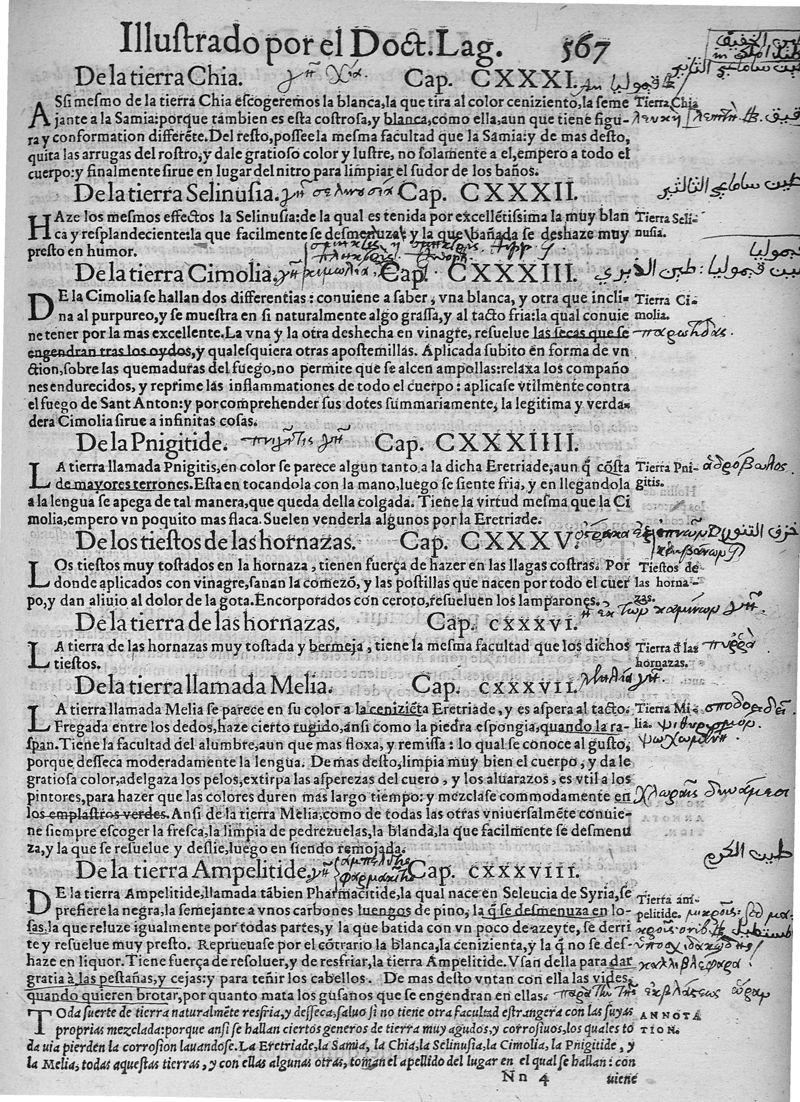 Illustrado por el Doct. Lag. 567
De la tierra Chia. γῆ χία. Cap. CXXXI.
ASsi mesmo de la tierra Chia escogeremos la blanca, la que tira al color ceniziento, la seme
jante a la Samia: porque tambien es esta costrosa, y blanca, como ella, aun que tiene figu-
ra y conformation differẽte. Del resto, possee la mesma facultad que la Samia: y de mas desto,
quita las arrugas del rostro, y dale gratioso color y lustre, no solamente a el, empero a todo el
cuerpo: y finalmente sirue en lugar del nitro para limpiar el sudor de los baños.
Tierra Chia
De la tierra Selinusia. γῆ σελινουσία Cap. CXXXII.
HAze los mesmos effectos la Selinusia: de la qual es tenida por excellẽtissima la muy blan
ca y resplandeciente: la que facilmente se desmenuza: y la que bañada se deshaze muy
presto en humor.
Tierra Seli-
nusia.
De la tierra Cimolia. γῆ κιμωλία. Cap. CXXXIII. طين قيموليا
DE la Cimolia se hallan dos differentias: conuiene a saber, vna blanca, y otra que incli-
na al purpureo, y se muestra en si naturalmente algo grassa, y al tacto fria: la qual conuie
ne tener por la mas excellente. La vna y la otra deshecha en vinagre, resuelue las secas que se
engendran tras los oydos, y qualesquiera otras apostemillas. Aplicada subito en forma de vn
ction, sobre las quemaduras del fuego, no permite que se alcen ampollas: relaxa los compaño
nes endurecidos, y reprime las inflammationes de todo el cuerpo: aplicase vtilmente contra
el fuego de Sant Anton: y por comprehender sus dotes summariamente, la legitima y verda-
dera Cimolia sirue a infinitas cosas.
Tierra Ci-
molia.
παρωτίδας.
De la Pnigitide. πνιγῖτις γῆ Cap. CXXXIIII.
LA tierra llamada Pnigitis, en color se parece algun tanto a la dicha Eretriade, aun q̃ cõsta
de mayores terrones. Esta en tocandola con la mano, luego se siente fria, y en llegandola
a la lengua se apega de tal manera, que queda della colgada. Tiene la virtud mesma que la Ci
molia, empero vn poquito mas flaca. Suelen venderla algunos por la Eretriade.
Tierra Pni-
gitis.
ἁδρόβωλος.
De los tiestos de las hornazas. Cap. CXXXV. خزف التنور
LOs tiestos muy tostados en la hornaza, tienen fuerça de hazer en las llagas costras. Por
donde aplicados con vinagre, sanan la comezõ, y las postillas que nacen por todo el cuer
po, y dan aliuio al dolor de la gota. Encorporados con ceroto, resueluen los lamparones.
Tiestos de
las horna-
zas.
De la tierra de las hornazas. Cap. CXXXVI. ἡ ἐκ τῶν καμίνων γῆ.
LA tierra de las hornazas muy tostada y bermeja, tiene la mesma facultad que los dichos
tiestos.
Tierra d̃ las
hornazas.
πυῤῥὰ
De la tierra llamada Melia. Cap. CXXXVII. μηλία γῆ.
LA tierra llamada Melia se parece en su color a la ceniziẽta Eretriade, y es aspera al tacto.
Fregada entre los dedos, haze cierto rugido, ansi como la piedra espongia, quando la ra-
span. Tiene la facultad del alumbre, aun que mas floxa, y remissa: lo qual se conoce al gusto,
porque desseca moderadamente la lengua. De mas desto, limpia muy bien el cuerpo, y da le
gratioso color, adelgaza los pelos, extirpa las asperezas del cuero, y los aluarazos, es vtil a los
pintores, para hazer que las colores duren mas largo tiempo: y mezclase commodamente en
los emplastros verdes. Ansi de la tierra Melia, como de todas las otras vniuersalmẽte conuie-
ne siempre escoger la fresca, la limpia de pedrezuelas, la blanda, la que facilmente se desmenu
za, y la que se resuelue y deslie, luego en siendo remojada.
Tierra Mi-
lia.
σποδοειδεῖ.
ψιθυρισμόν.
χλωραῖς δυνάμεσι
طين الكرم
De la tierra Ampelitide. γῆ ἀμπελῖτις φαρμακῖτις Cap. CXXXVIII.
DE la tierra Ampelitide, llamada tãbien Pharmacitide, la qual nace en Seleucia de Syria, se
prefiere la negra, la semejante a vnos carbones luengos de pino, la q̃ se desmenuza en lo-
sas, la que reluze igualmente por todas partes, y la que batida con vn poco de azeyte, se derri
te y resuelue muy presto. Reprueuase por el cõtrario la blanca, la cenizienta, y la q̃ no se des-
haze en liquor. Tiene fuerça de resoluer, y de resfriar, la tierra Ampelitide. Vsan della para dar
gratia à las pestañas, y cejas: y para teñir los cabellos. De mas desto vntan con ella las vides,
quando quieren brotar, por quanto mata los gusanos que se engendran en ellas.
Tierra am-
pelitide.
καλλιβλέφαρα
TOda suerte de tierra naturalmẽte resfria, y desseca, saluo si no tiene otra facultad estrangera con las suyas
proprias mezclada: porque ansi se hallan ciertos generos de tierra muy agudos, y corrosiuos, los quales to
da uia pierden la corrosion lauandose. La Eretriade, la Samia, la Chia, la Selinusia, la Cimolia, la Pnigitide, y
la Melia, todas aquestas tierras, y con ellas algunas otras, toman el apellido del lugar en el qual se hallan: con
ANNOTA
TION.
Nn 4 uiene